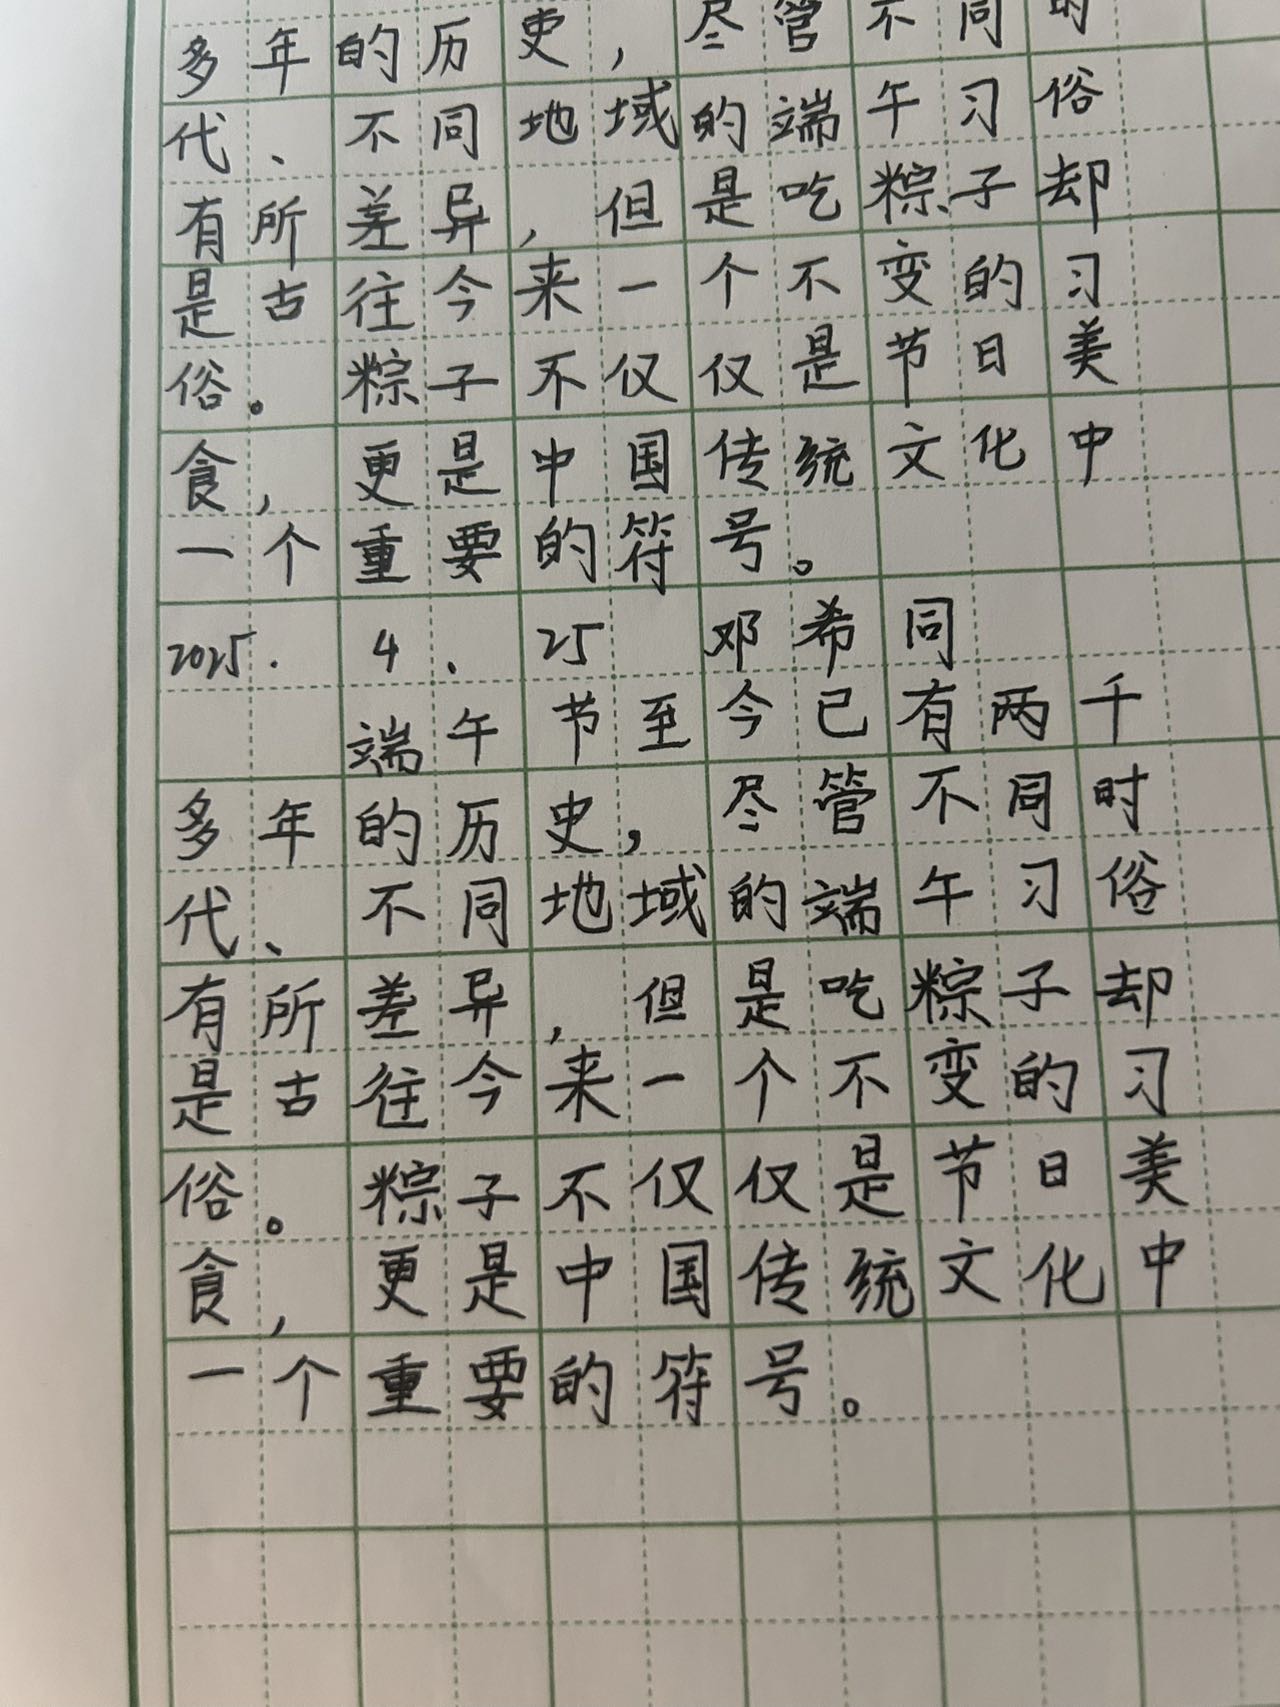 多年的历史，尽管不同时
代、不同地域的端午习俗
有所差异，但是吃粽子却
是古往今来一个不变的习
俗。粽子不仅仅是节日美
食，更是中国传统文化中
一个重要的符号。
2025. 4. 25 邓希同
端午节至今已有两千
多年的历史，尽管不同时
代、不同地域的端午习俗
有所差异，但是吃粽子却
是古往今来一个不变的习
俗。粽子不仅仅是节日美
食，更是中国传统文化中
一个重要的符号。